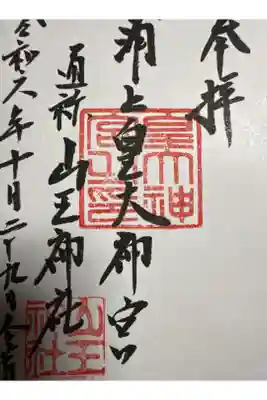 奉拝
浦上皇大神宮
皇大神
通称 山王神社
山王神社
令和六年十月二十九日